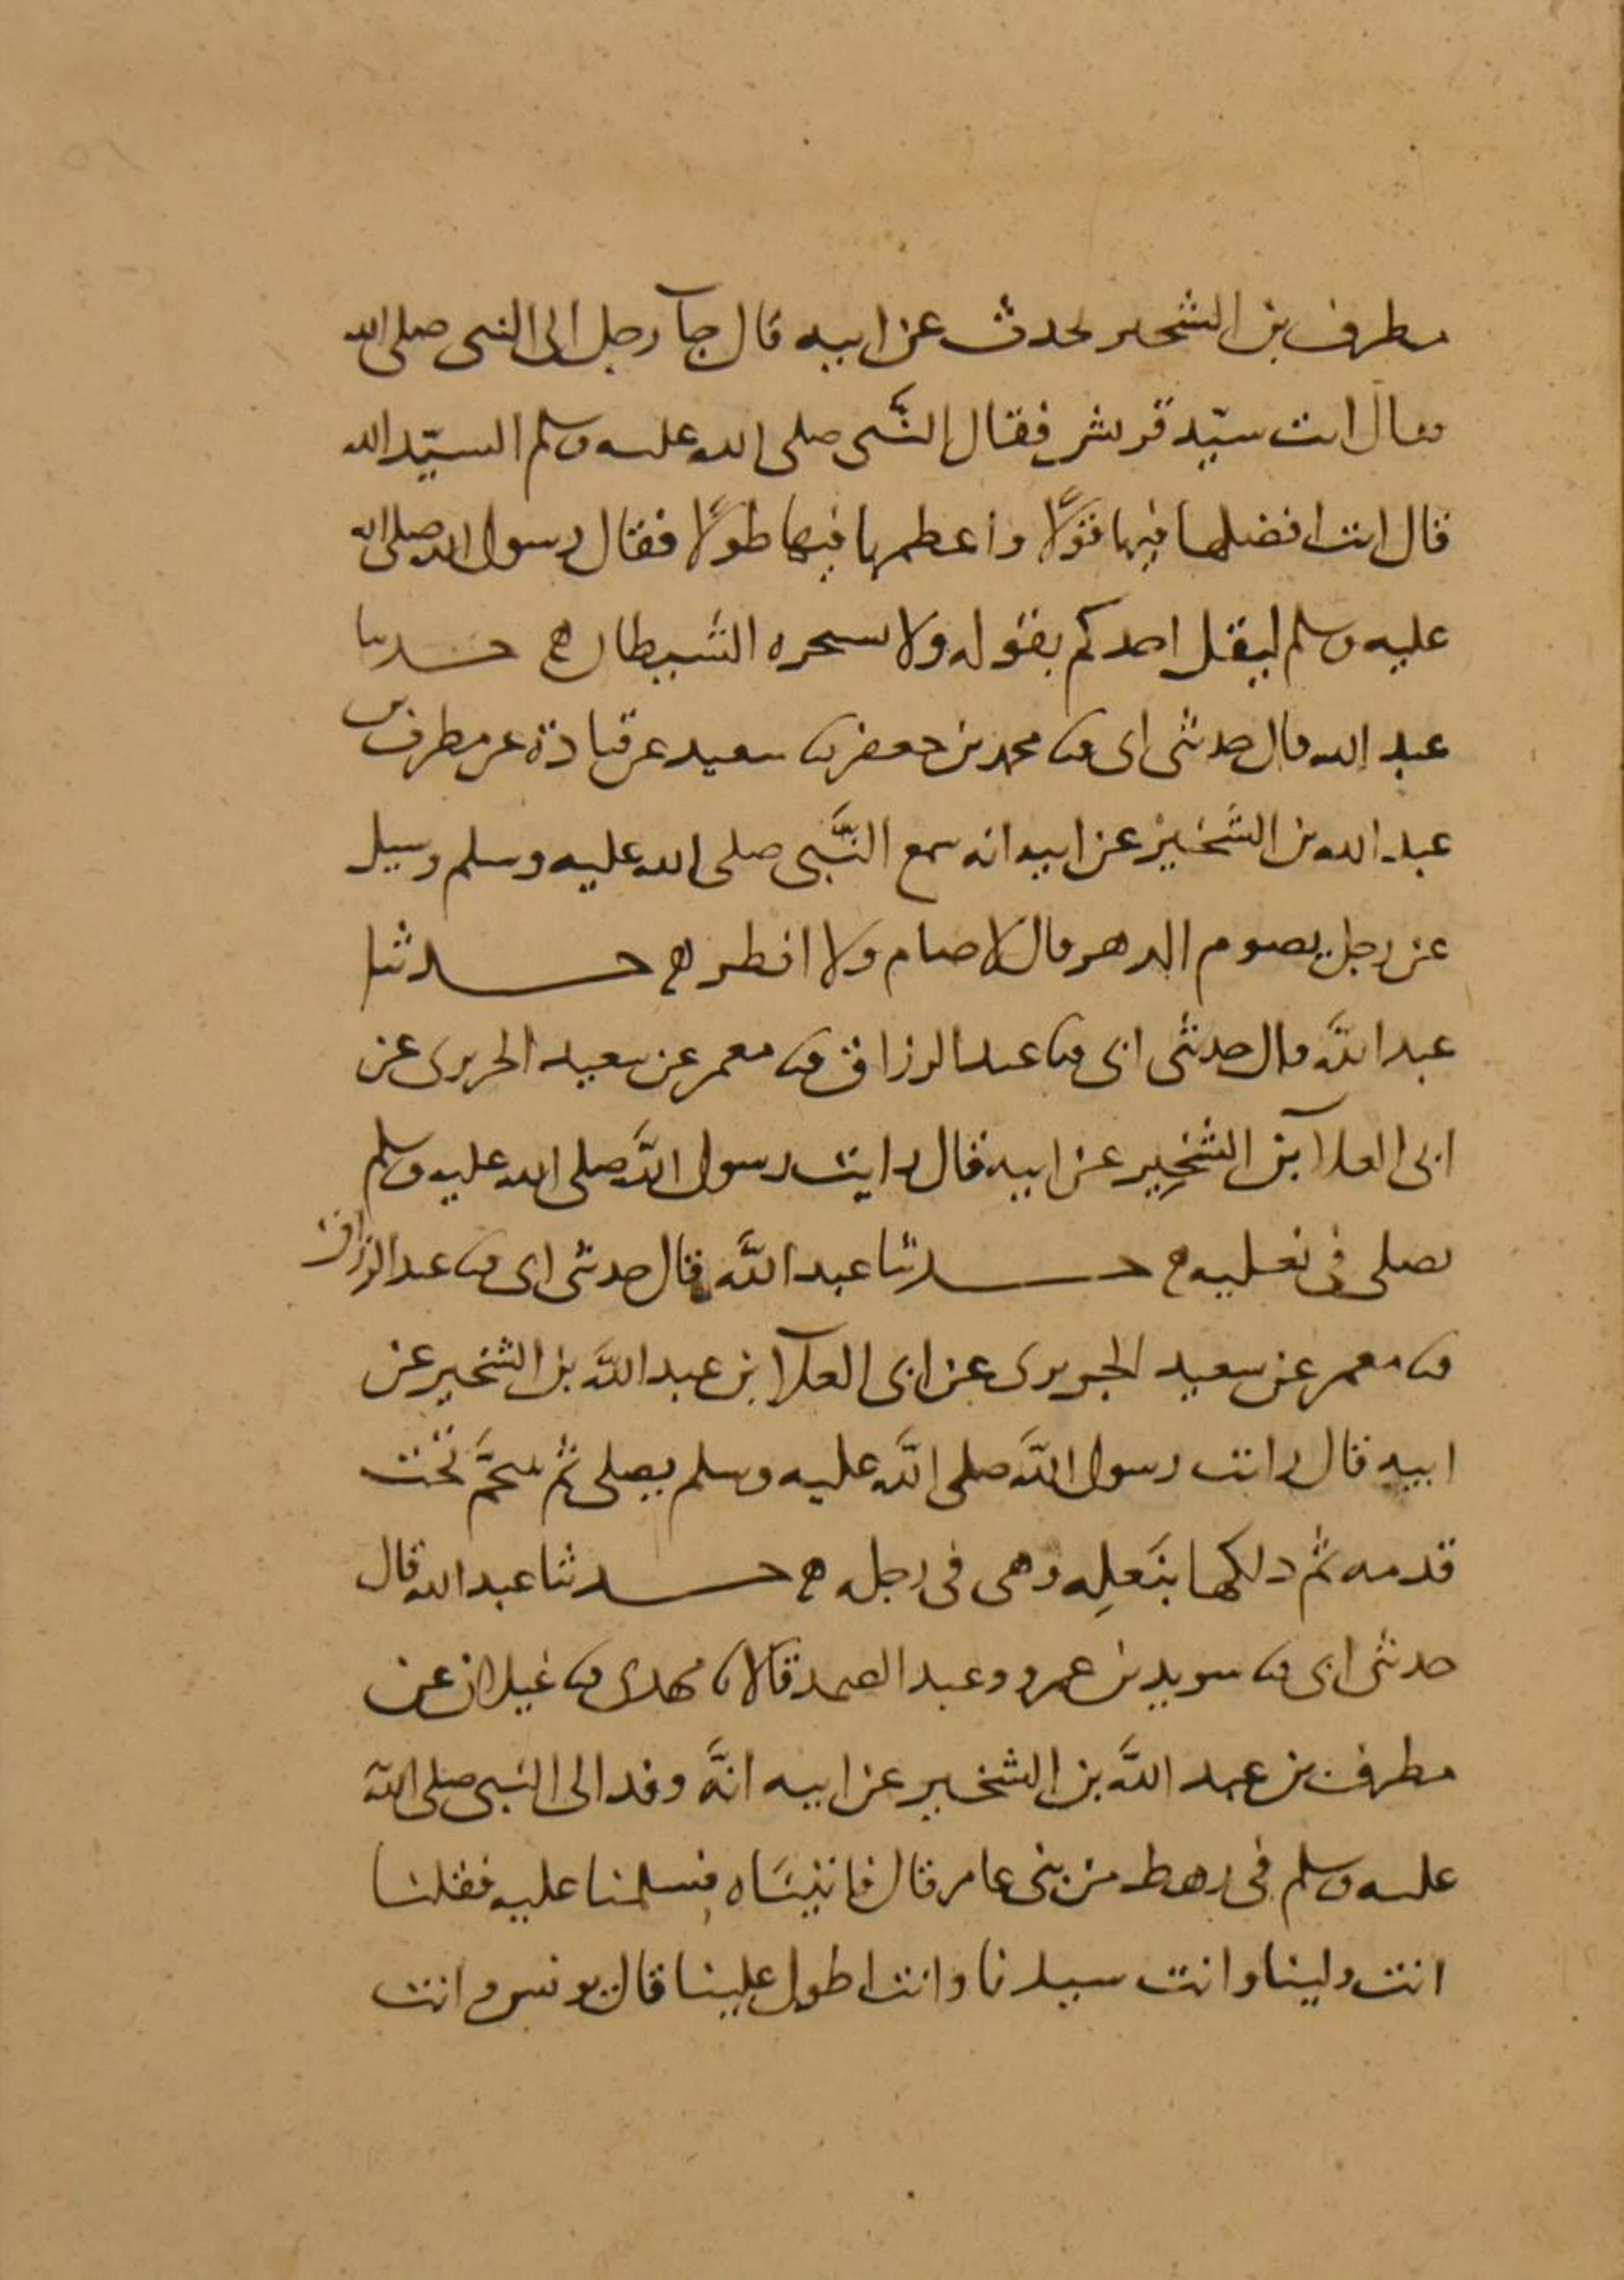 مطرف بن الشخير يحدث عن ابيه قال جآ رجل الى النبى صلى الله
فقال انت سيّد قريش فقال النَّبى صلى الله عليه وسلم السيّد الله
قال انت افضلها فيها قَوْلًا واعظمها فيها طولًا فقال رسول الله صلى الله
عليه وسلم ليقل احدكم بقوله ولا يستجره الشيطان ه حدثنا
عبد الله قال حدثنى ابى ثنا محمد بن جعفر ثنا سعيد عن قتادة عن مطرف بن
عبد الله بن الشخير عن ابيه انه سمع النَّبى صلى الله عليه وسلم وسيل
عن رجل يصوم الدهر قال لا صام ولا افطر ه حدثنا
عبد الله قال حدثنى ابى ثنا عبد الرزاق ثنا معمر عن سعيد الجريرى عن
ابى العلآ بن الشخِير عن ابيه قال رايت رسول الله صلى الله عليه وسلم
يصلى فى نعليه ه حدثنا عبد الله قال حدثنى ابى ثنا عبد الرزاق
ثنا معمر عن سعيد الجريرى عن ابى العلآ بن عبد الله بن الشخير عن
ابيه قال رايت رسول الله صلى الله عليه وسلم يصلى ثم تنخَّم تحت
قدمه ثم دلكها بنَعلِه وهى فى رجله ه حدثنا عبد الله قال
حدثنى ابى ثنا سويد بن عمرو وعبد الصمد قالا ثنا مهدى ثنا غيلان عن
مطرف بن عبد الله بن الشخير عن ابيه انَّه وفد الى النبى صلى الله
عليه وسلم فى رهط من بنى عامر قال فاتيناه فسلمنا عليه فقلنا
انت ولينا وانت سيدنا وانت اطول علينا قال يونس وانت